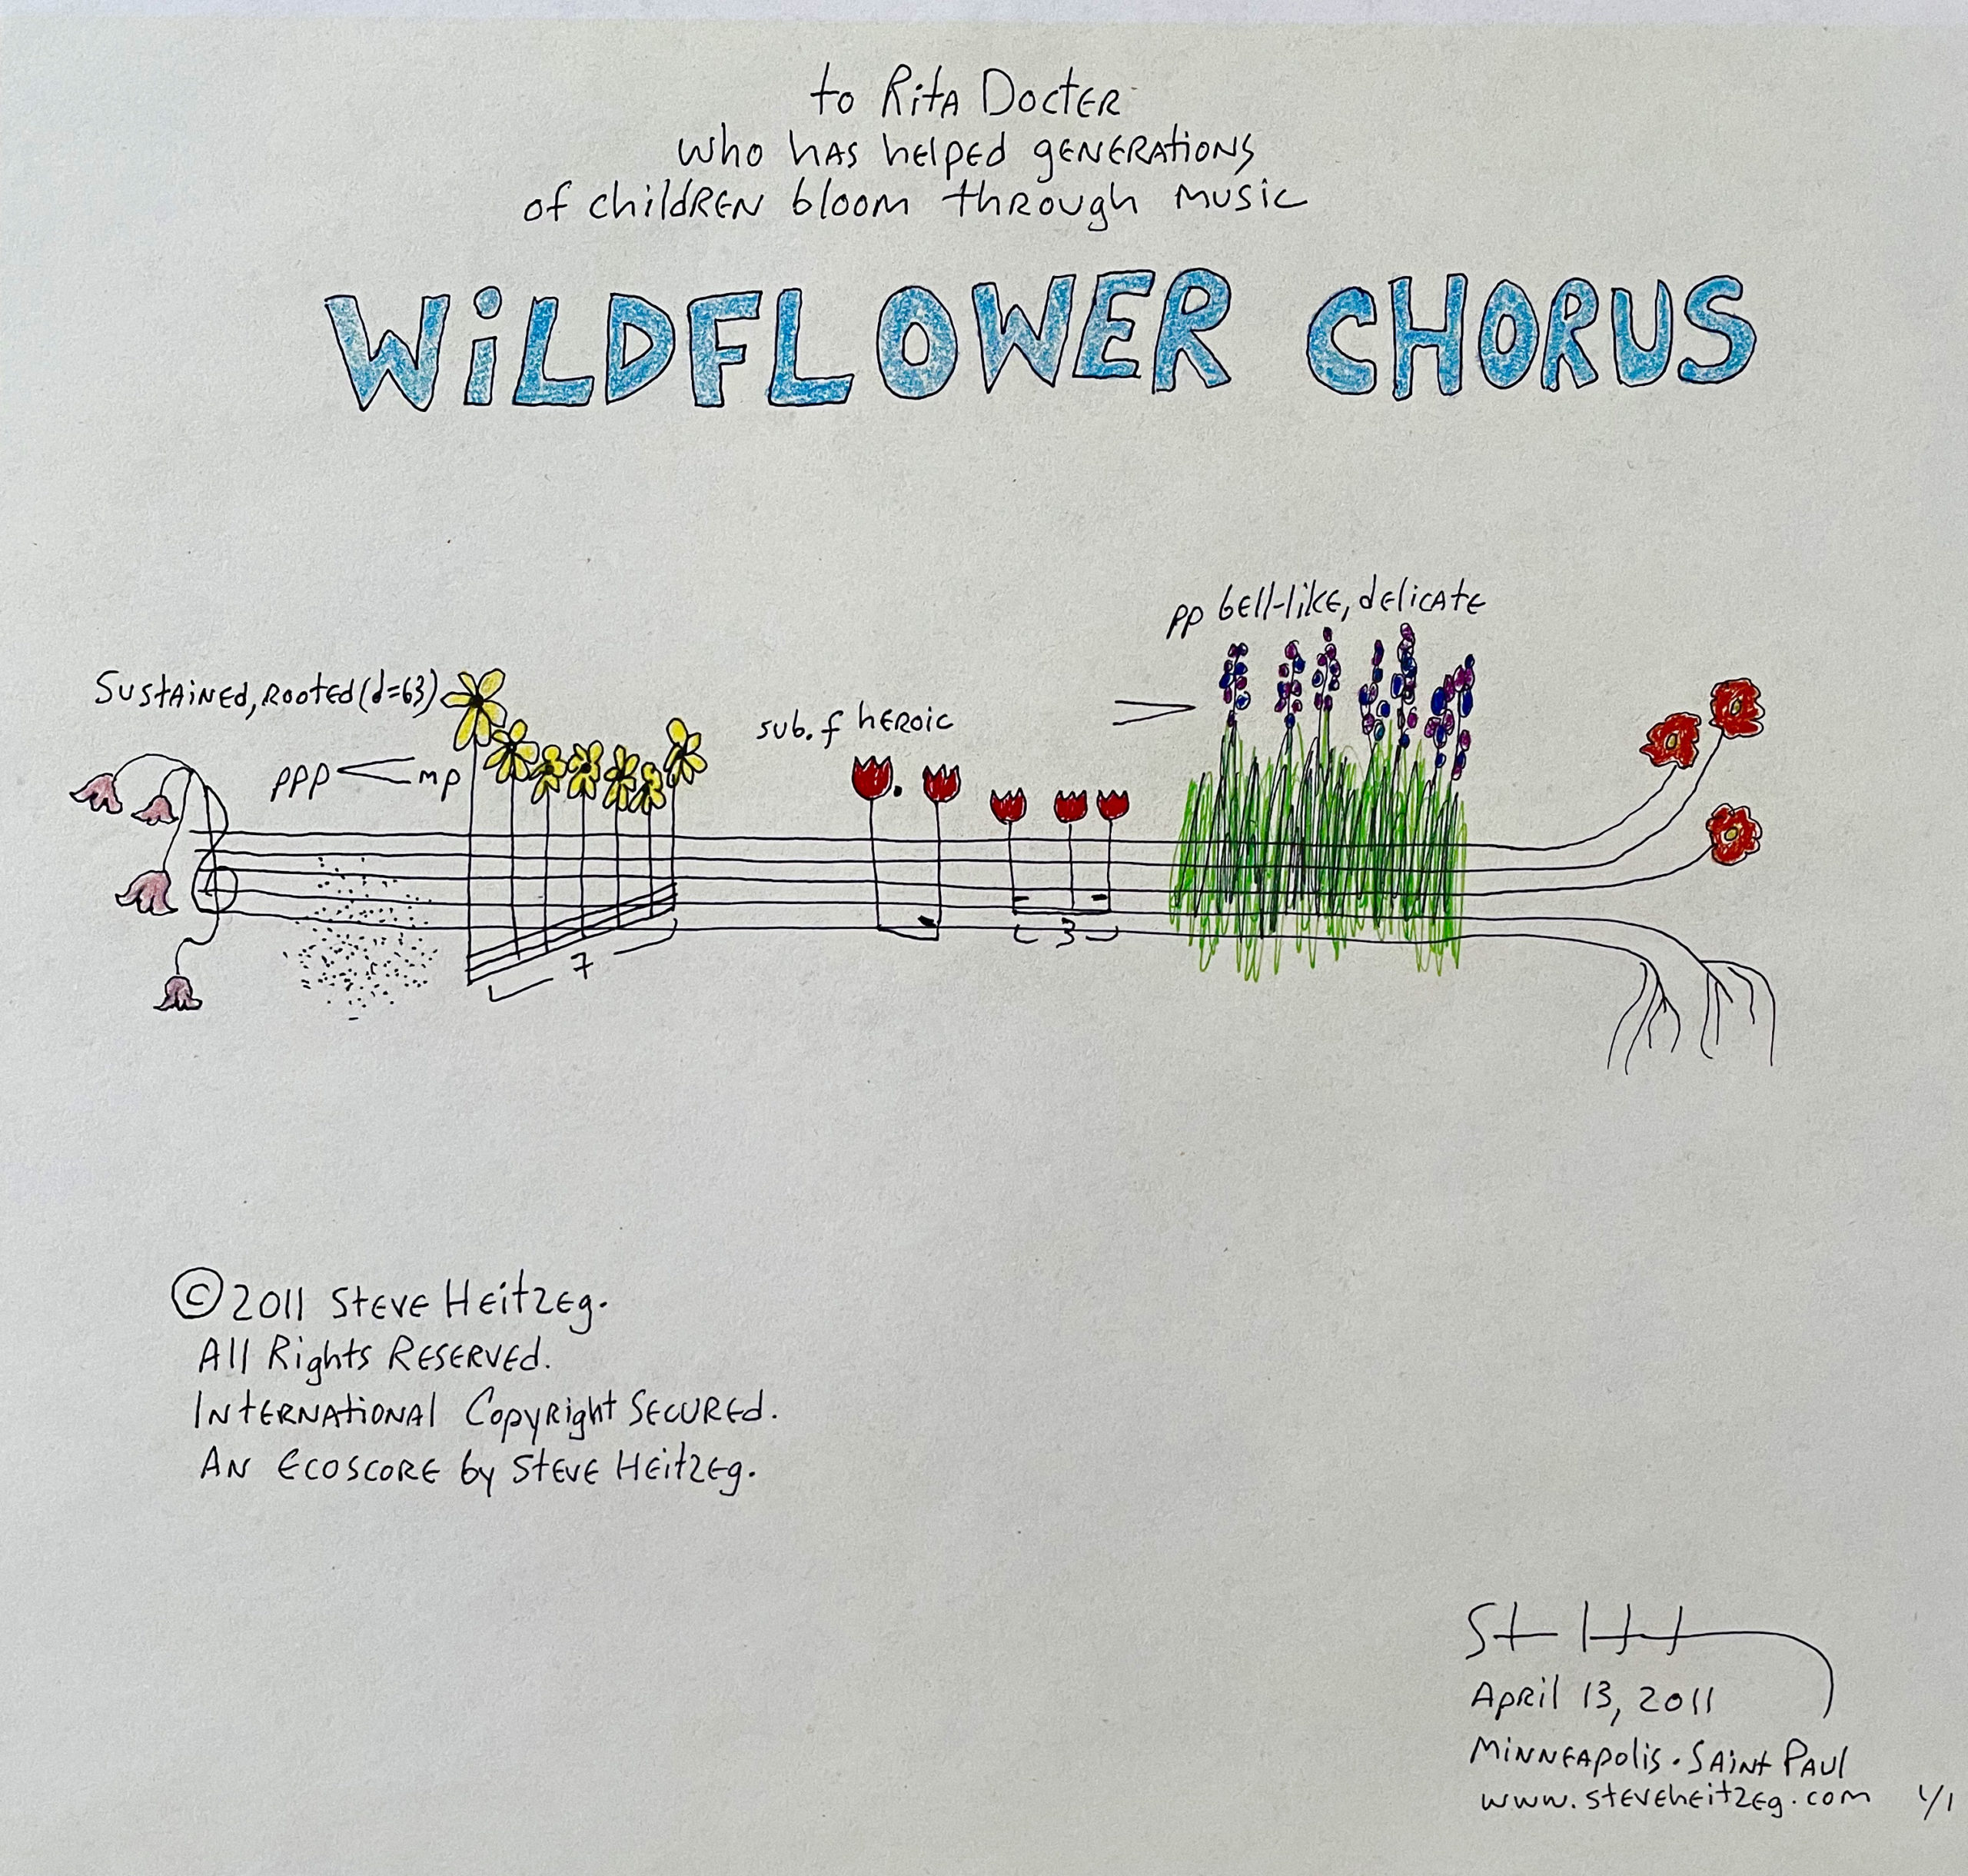 to Rita Docter
who has helped generations
of children bloom through music
WiLDFLOWER CHORUS
pp bell-like, delicate
Sustained, Rooted (𝅗𝅥=63)
sub. f heroic
ppp < mp
7
3
©2011 Steve Heitzeg.
All Rights Reserved.
International Copyright Secured.
An Ecoscore by Steve Heitzeg.
April 13, 2011
Minneapolis • Saint Paul
www.steveheitzeg.com 1/1